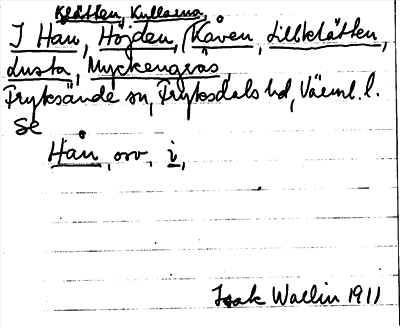 Klätten, Kullarna,
I Han, Höjden, Kåven, Lillklätten,
Lusta, Myckengräs
Fryksände sn, Fryksdals hd, Värml. l.
Se
Hån, osv, i,
Isak Wallin 1911